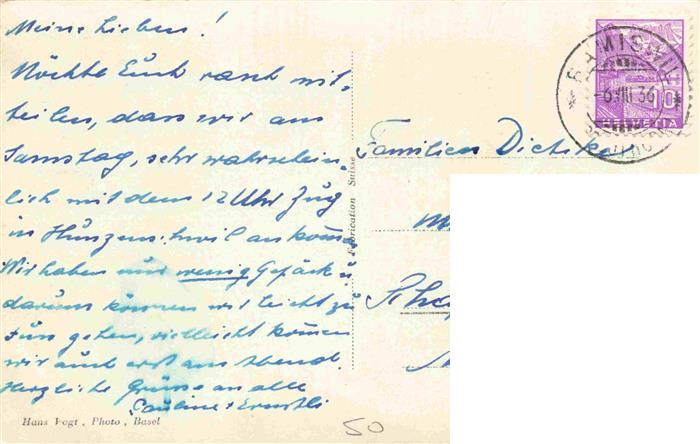 Meine Lieben!
Möchte Euch rasch mit-
teilen, dass wir am
Samstag, sehr wahrschein-
lich mit dem 12 Uhr Zug
in Hunzenschwil ankom̄en
Wir haben nur wenig Gepäck u.
darum können wir leicht zu
Fuss gehen, vielleicht kom̄en
wir auch erst am Abend.
Herzliche Grüsse an alle
Pauline + Ernstli
Hans Vogt, Photo, Basel
Fabrication Suisse
50
-6.VIII 36
10
HELVETIA
Familien